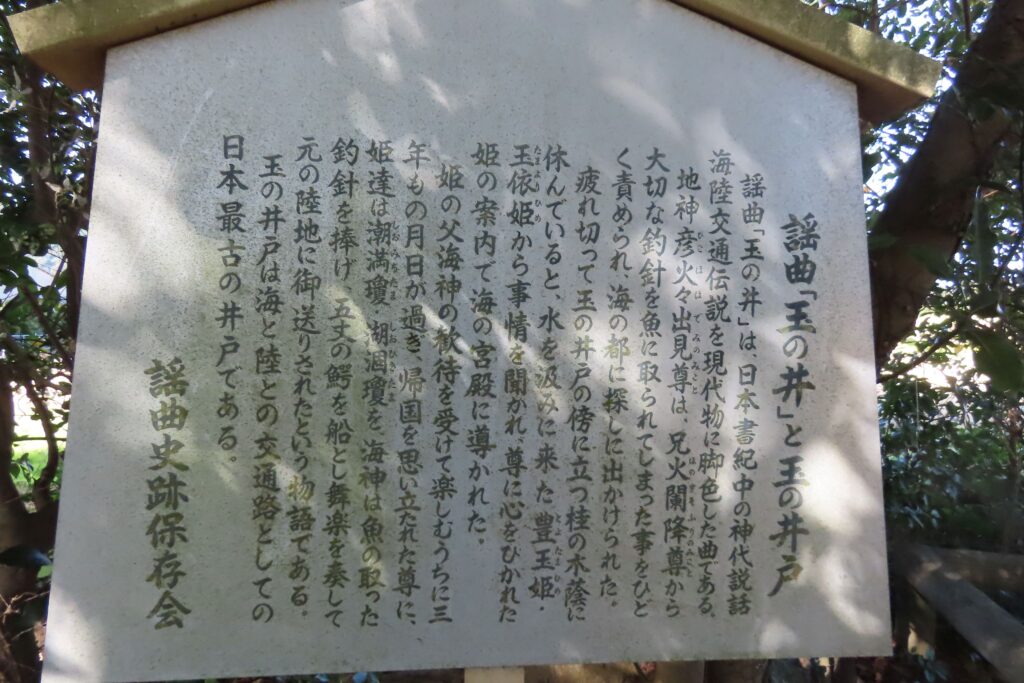 謡曲「玉の井」と玉の井戸
謡曲「玉の井」は、日本書紀中の神代説話
海陸交通伝説を現代物に脚色した曲である。
地神彦火々出見尊は、兄火闌降尊から
大切な釣針を魚に取られてしまった事をひど
く責められ、海の都に探しに出かけられた。
疲れ切って玉の井戸の傍に立つ桂の木蔭に
休んでいると、水を汲みに来た豊玉姫・
玉依姫から事情を聞かれ、尊に心をひかれた
姫の案内で海の宮殿に導かれた。
姫の父海神の歓待を受けて楽しむうちに三
年もの月日が過ぎ、帰国を思い立たれた尊に、
姫達は潮満瓊、潮涸瓊を、海神は魚の取った
釣針を捧げ、五丈の鰐を船とし舞楽を奏して
元の陸地に御送りされたという物語である。
玉の井戸は海と陸との交通路としての
日本最古の井戸である。
謡曲史跡保存会